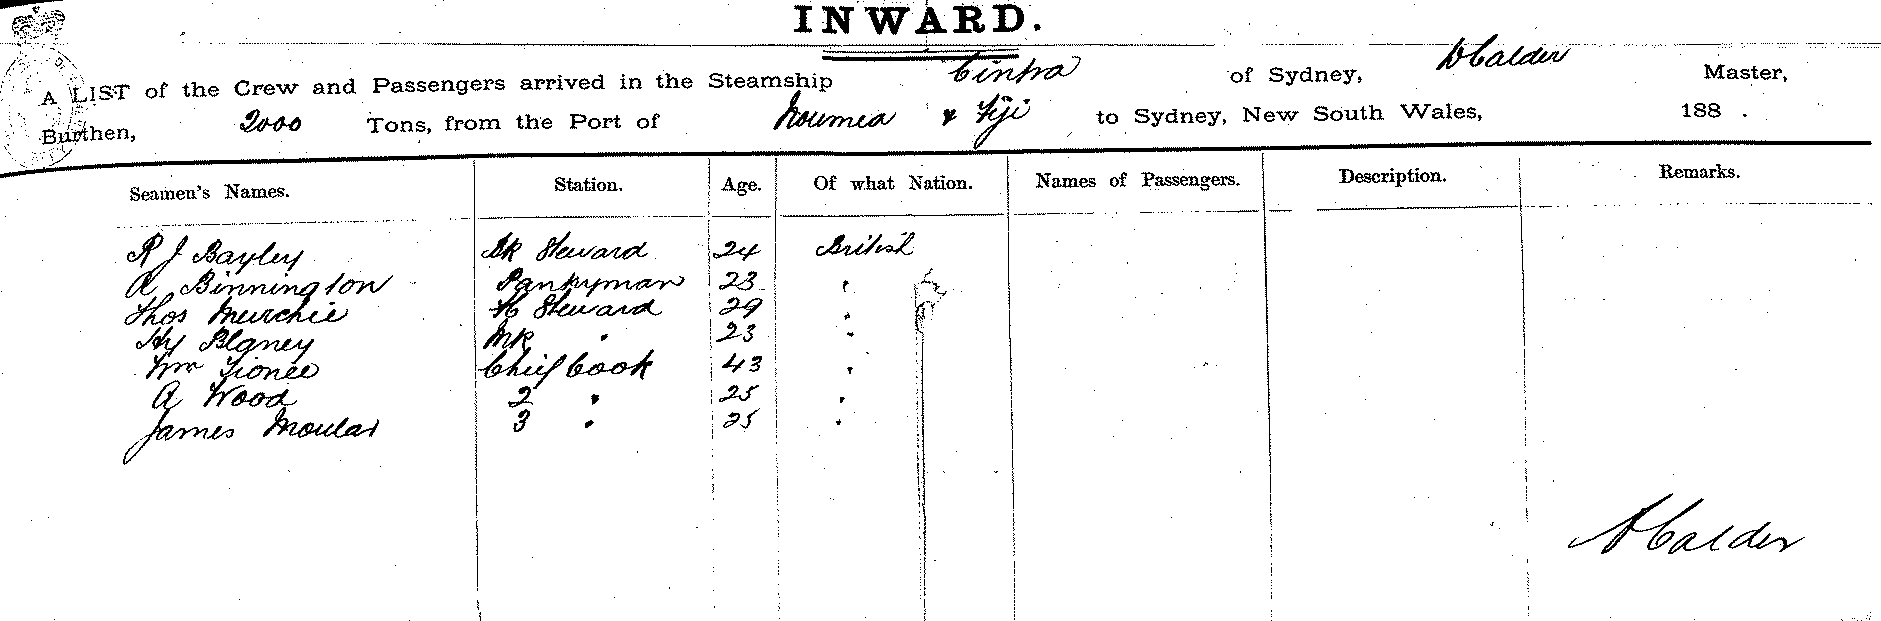 INWARD.
A LIST of the Crew and Passengers arrived in the Steamship Cintra of Sydney, D Calder Master,
Burthen, 2000 Tons, from the Port of Noumea & Fiji to Sydney, New South Wales, 188 .
Seamen's Names. Station. Age. Of what Nation. Names of Passengers. Description. Remarks.
R J Bayley BK Steward 24 British
A Binnington Pantryman 23 "
Thos Murchie Steward 29 "
Hy Blaney 23 "
Wm Chief Cook 43 "
A Wood 2 " 25 "
James 3 " 25 "
D Calder